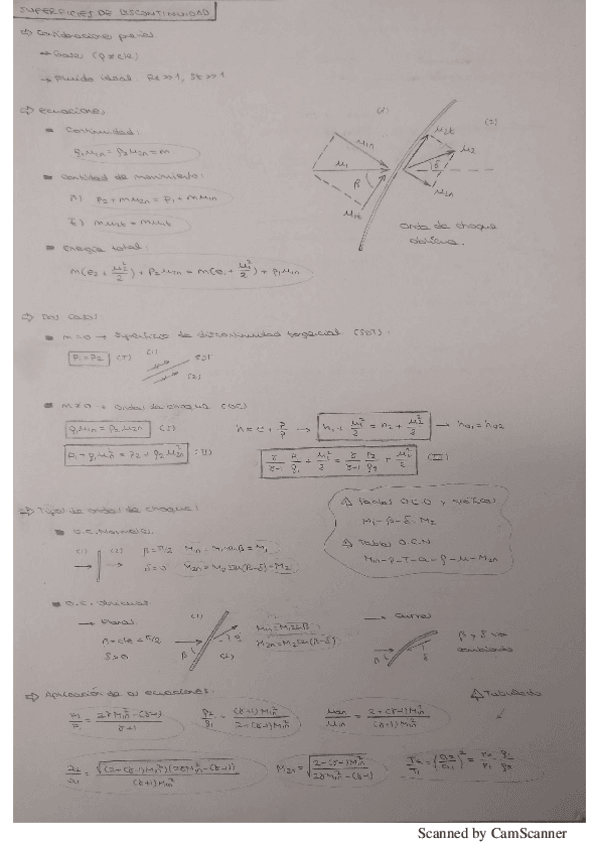 SUPERFICIES DE DISCONTINUIDAD
⇒ Consideraciones previas
→ Gases (ρ≠cte)
→ Fluido ideal: Re>>1, St>>1
⇒ Ecuaciones
▪ Continuidad:
ρ₁u₁n = ρ₂u₂n = m
▪ Cantidad de movimiento:
a) P₂ + m u₂n = P₁ + m u₁n
b) m u₂t = m u₁t
▪ Energía total:
m(e₂ + u₂²/2) + P₂u₂n = m(e₁ + u₁²/2) + P₁u₁n
(1)
(2)
u₁n
u₁
β
u₁t
u₂t
u₂
δ
u₂n
Onda de choque
oblicua.
⇒ Dos casos:
▪ m=0 → Superficie de discontinuidad tangencial (SDT):
P₁ = P₂ (I)
(1)
SDT
(2)
▪ m≠0 → Ondas de choque (OC)
ρ₁u₁n = ρ₂u₂n (I)
h = e + P/ρ → h₁ + u₁²/2 = h₂ + u₂²/2 → h₀₁ = h₀₂
P₁ + ρ₁u₁n² = P₂ + ρ₂u₂n² (II)
γ/(γ-1) P₁/ρ₁ + u₁²/2 = γ/(γ-1) P₂/ρ₂ + u₂²/2 (III)
⇒ Tipos de ondas de choque:
▪ O.C. Normales
(1) (2) β = π/2 M₁n = M₁ sen β = M₁
δ = 0 M₂n = M₂ sen(β-δ) = M₂
O.C.O
M₁-β-δ-M₂
△ Tablas O.C.N
M₁n-P-T-a-ρ-u-M₂n
▪ O.C. Oblicuas
→ Planas
β = cte < π/2
δ > 0
(1)
β
δ
(2)
M₁n = M₁ sen β
M₂n = M₂ sen(β-δ)
→ Curvas
β
δ
β y δ van
cambiando
⇒ Aplicación de las ecuaciones:
△ Tabulado
P₂/P₁ = (2γM₁n² - (γ-1))/(γ+1)
ρ₂/ρ₁ = (γ+1)M₁n²/(2+(γ-1)M₁n²)
u₂n/u₁n = (2+(γ-1)M₁n²)/((γ+1)M₁n²)
a₂/a₁ = √((2+(γ-1)M₁n²)(2γM₁n²-(γ-1)))/((γ+1)M₁n)
M₂n = √((2+(γ-1)M₁n²)/(2γM₁n²-(γ-1)))
T₂/T₁ = (a₂/a₁)² = P₂/P₁ · ρ₁/ρ₂
Scanned by CamScanner